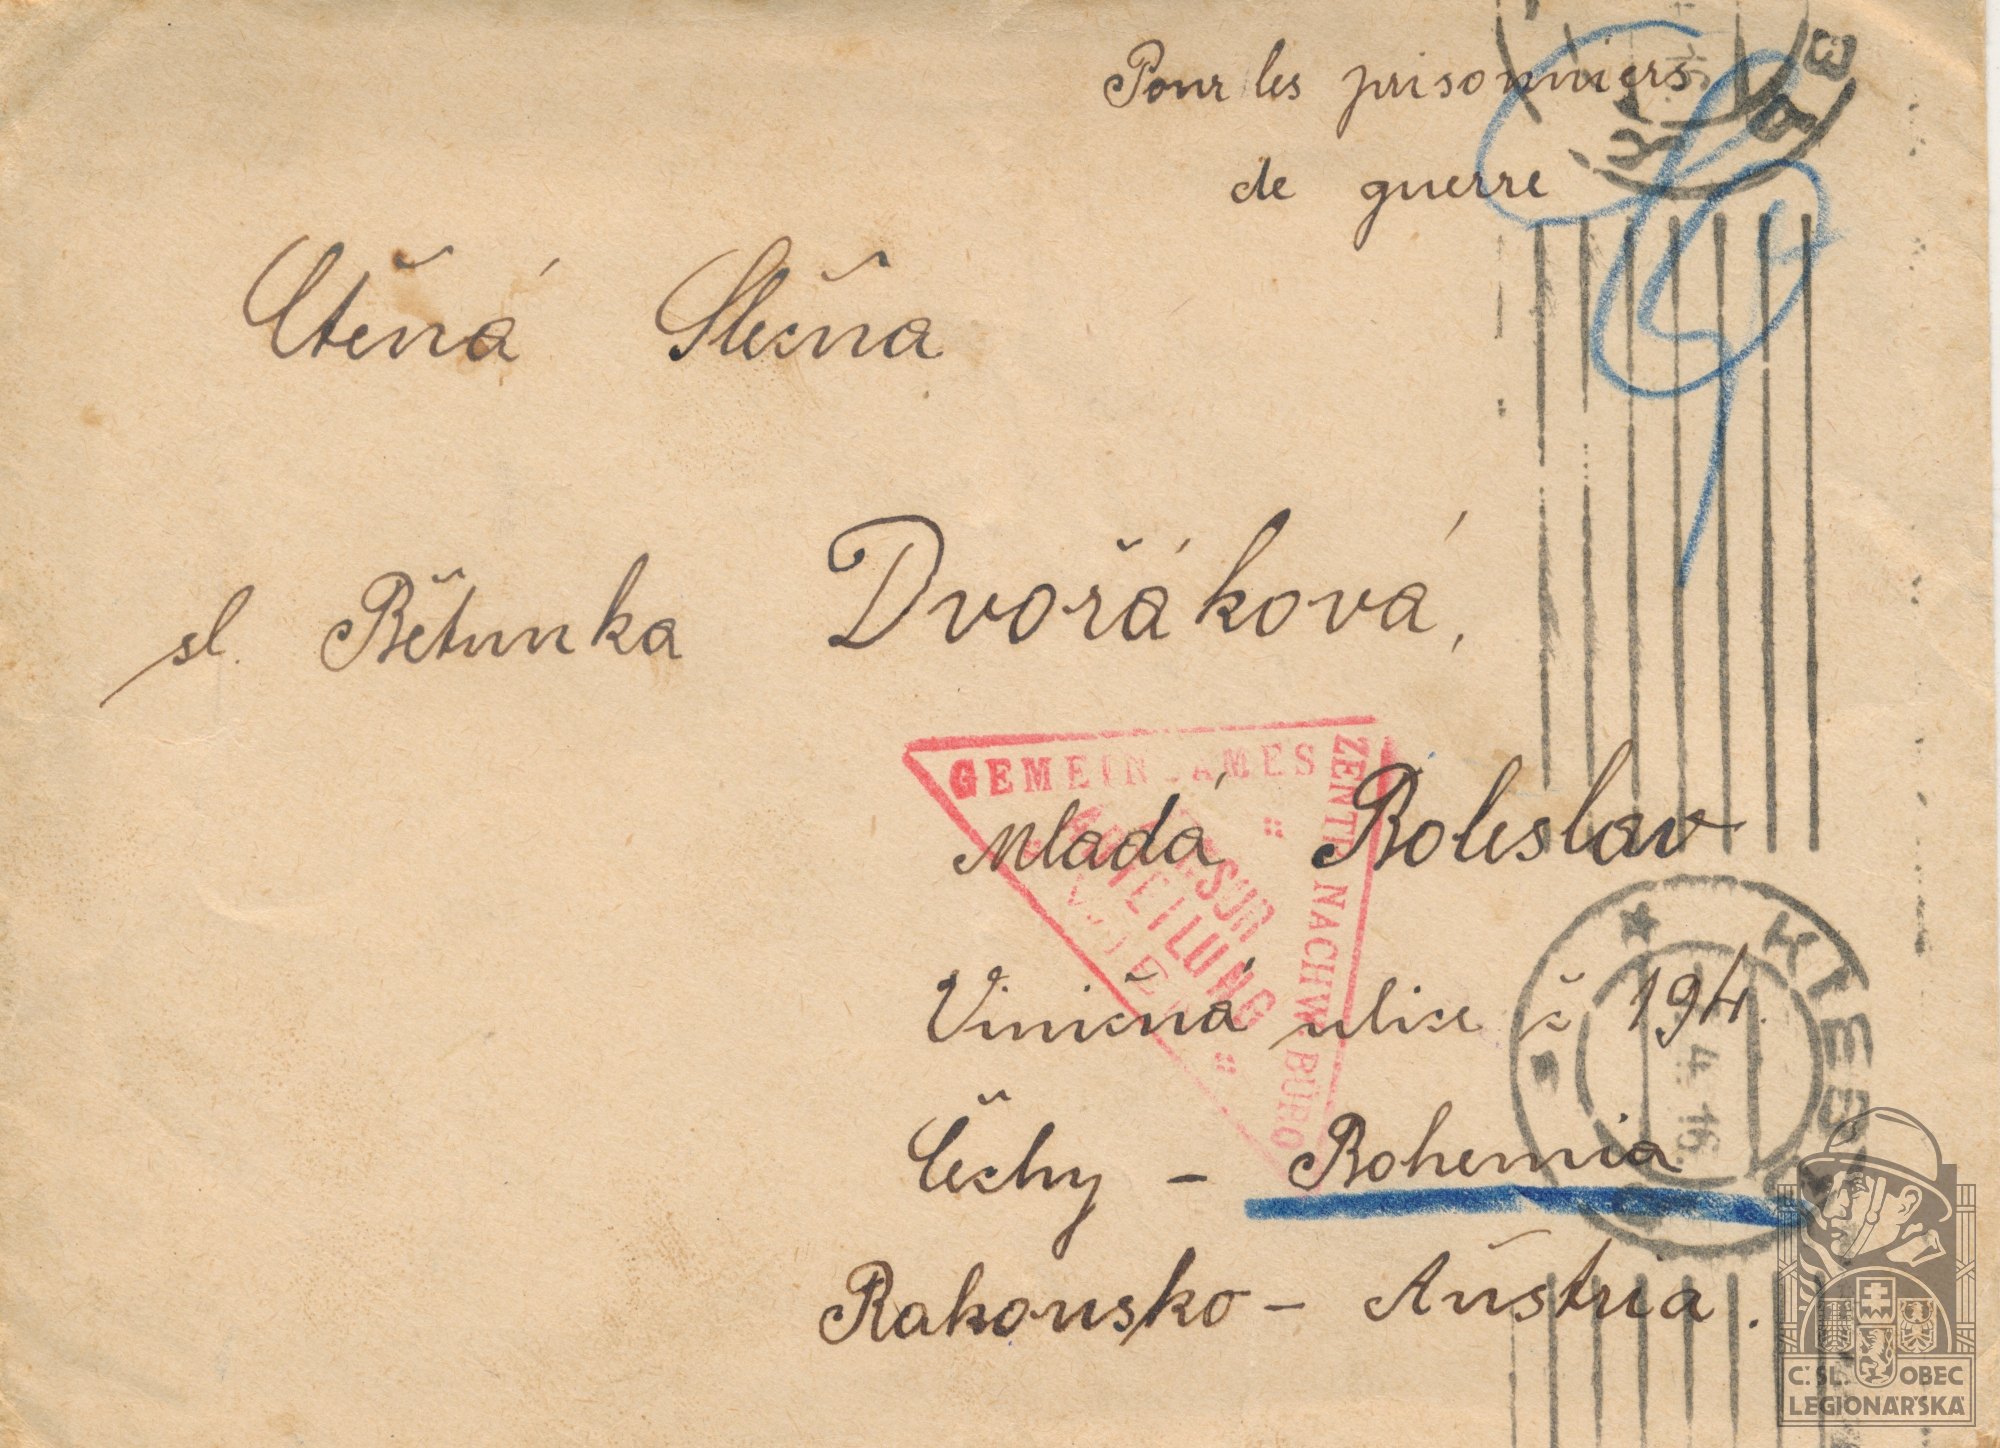 Pour les prisonniers
de guerre
Ctěná Slečna
sl. Bětunka Dvořáková,
Mladá Boleslav
Viničná ulice č 194.
Čechy – Bohemia
Rakousko – Austria.
GEMEINSAMES
ZENTR. NACHW. BÜRO
ZENSUR
ABTEILUNG
4. 16.
Č. SL. OBEC
LEGIONÁŘSKÁ